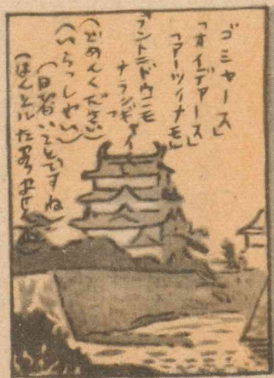 ゴミャース」
「オイデァース」
「アーツイナモ」
「アントニドウニモ
ナランギャイ」
(ごめんください)
(いらっしゃい)
(日暑いことですね)
(ほんとにたまりません